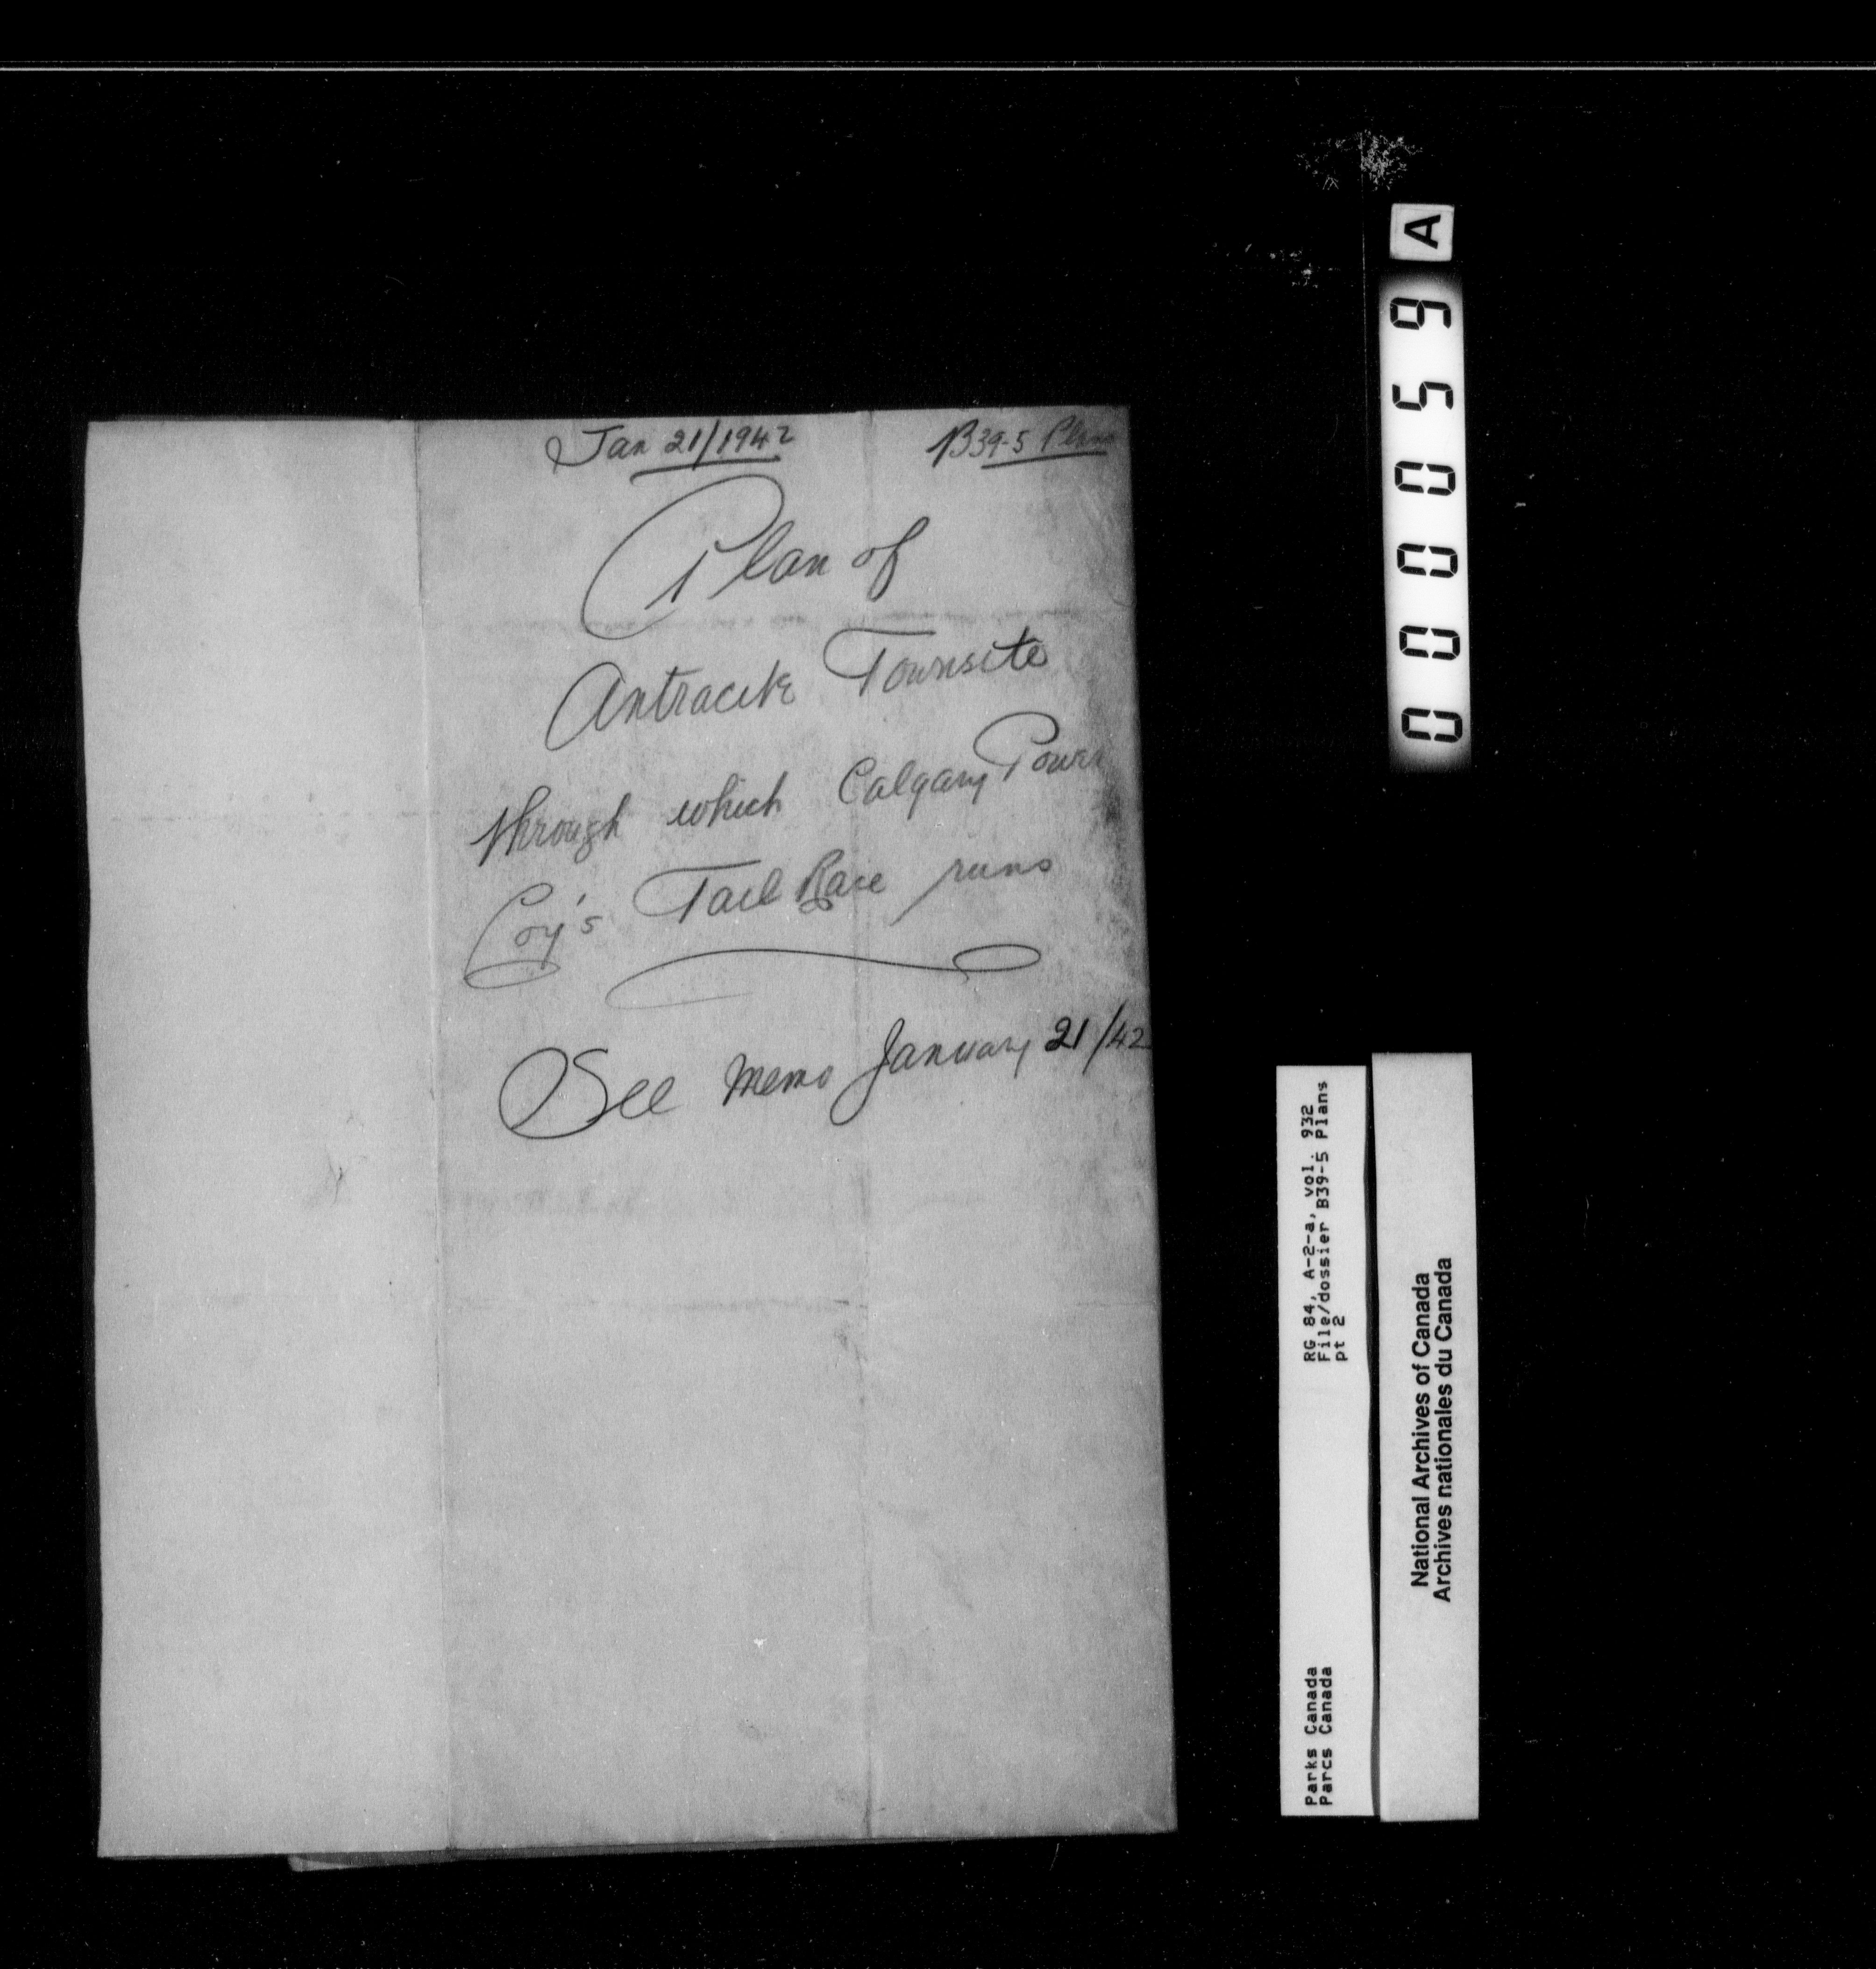 Jan 21/1942
B39-5 Plans
Plan of
Antracite Townsite
through which Calgary Power
Coy's Tail Race runs
See memo January 21/42
A
000059
RG 84, A-2-a, vol. 932
File/dossier B39-5 Plans
pt 2
Parks Canada
Parcs Canada
National Archives of Canada
Archives nationales du Canada